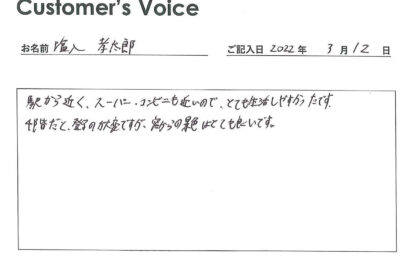 Customer's Voice
お名前 塩入 孝太郎 ご記入日 2022 年 3 月 12 日
駅から近く、スーパー・コンビニも近いので、とても生活しやすかったです。
4階だと、登るのが大変ですが、窓からの景色はとても良いです。